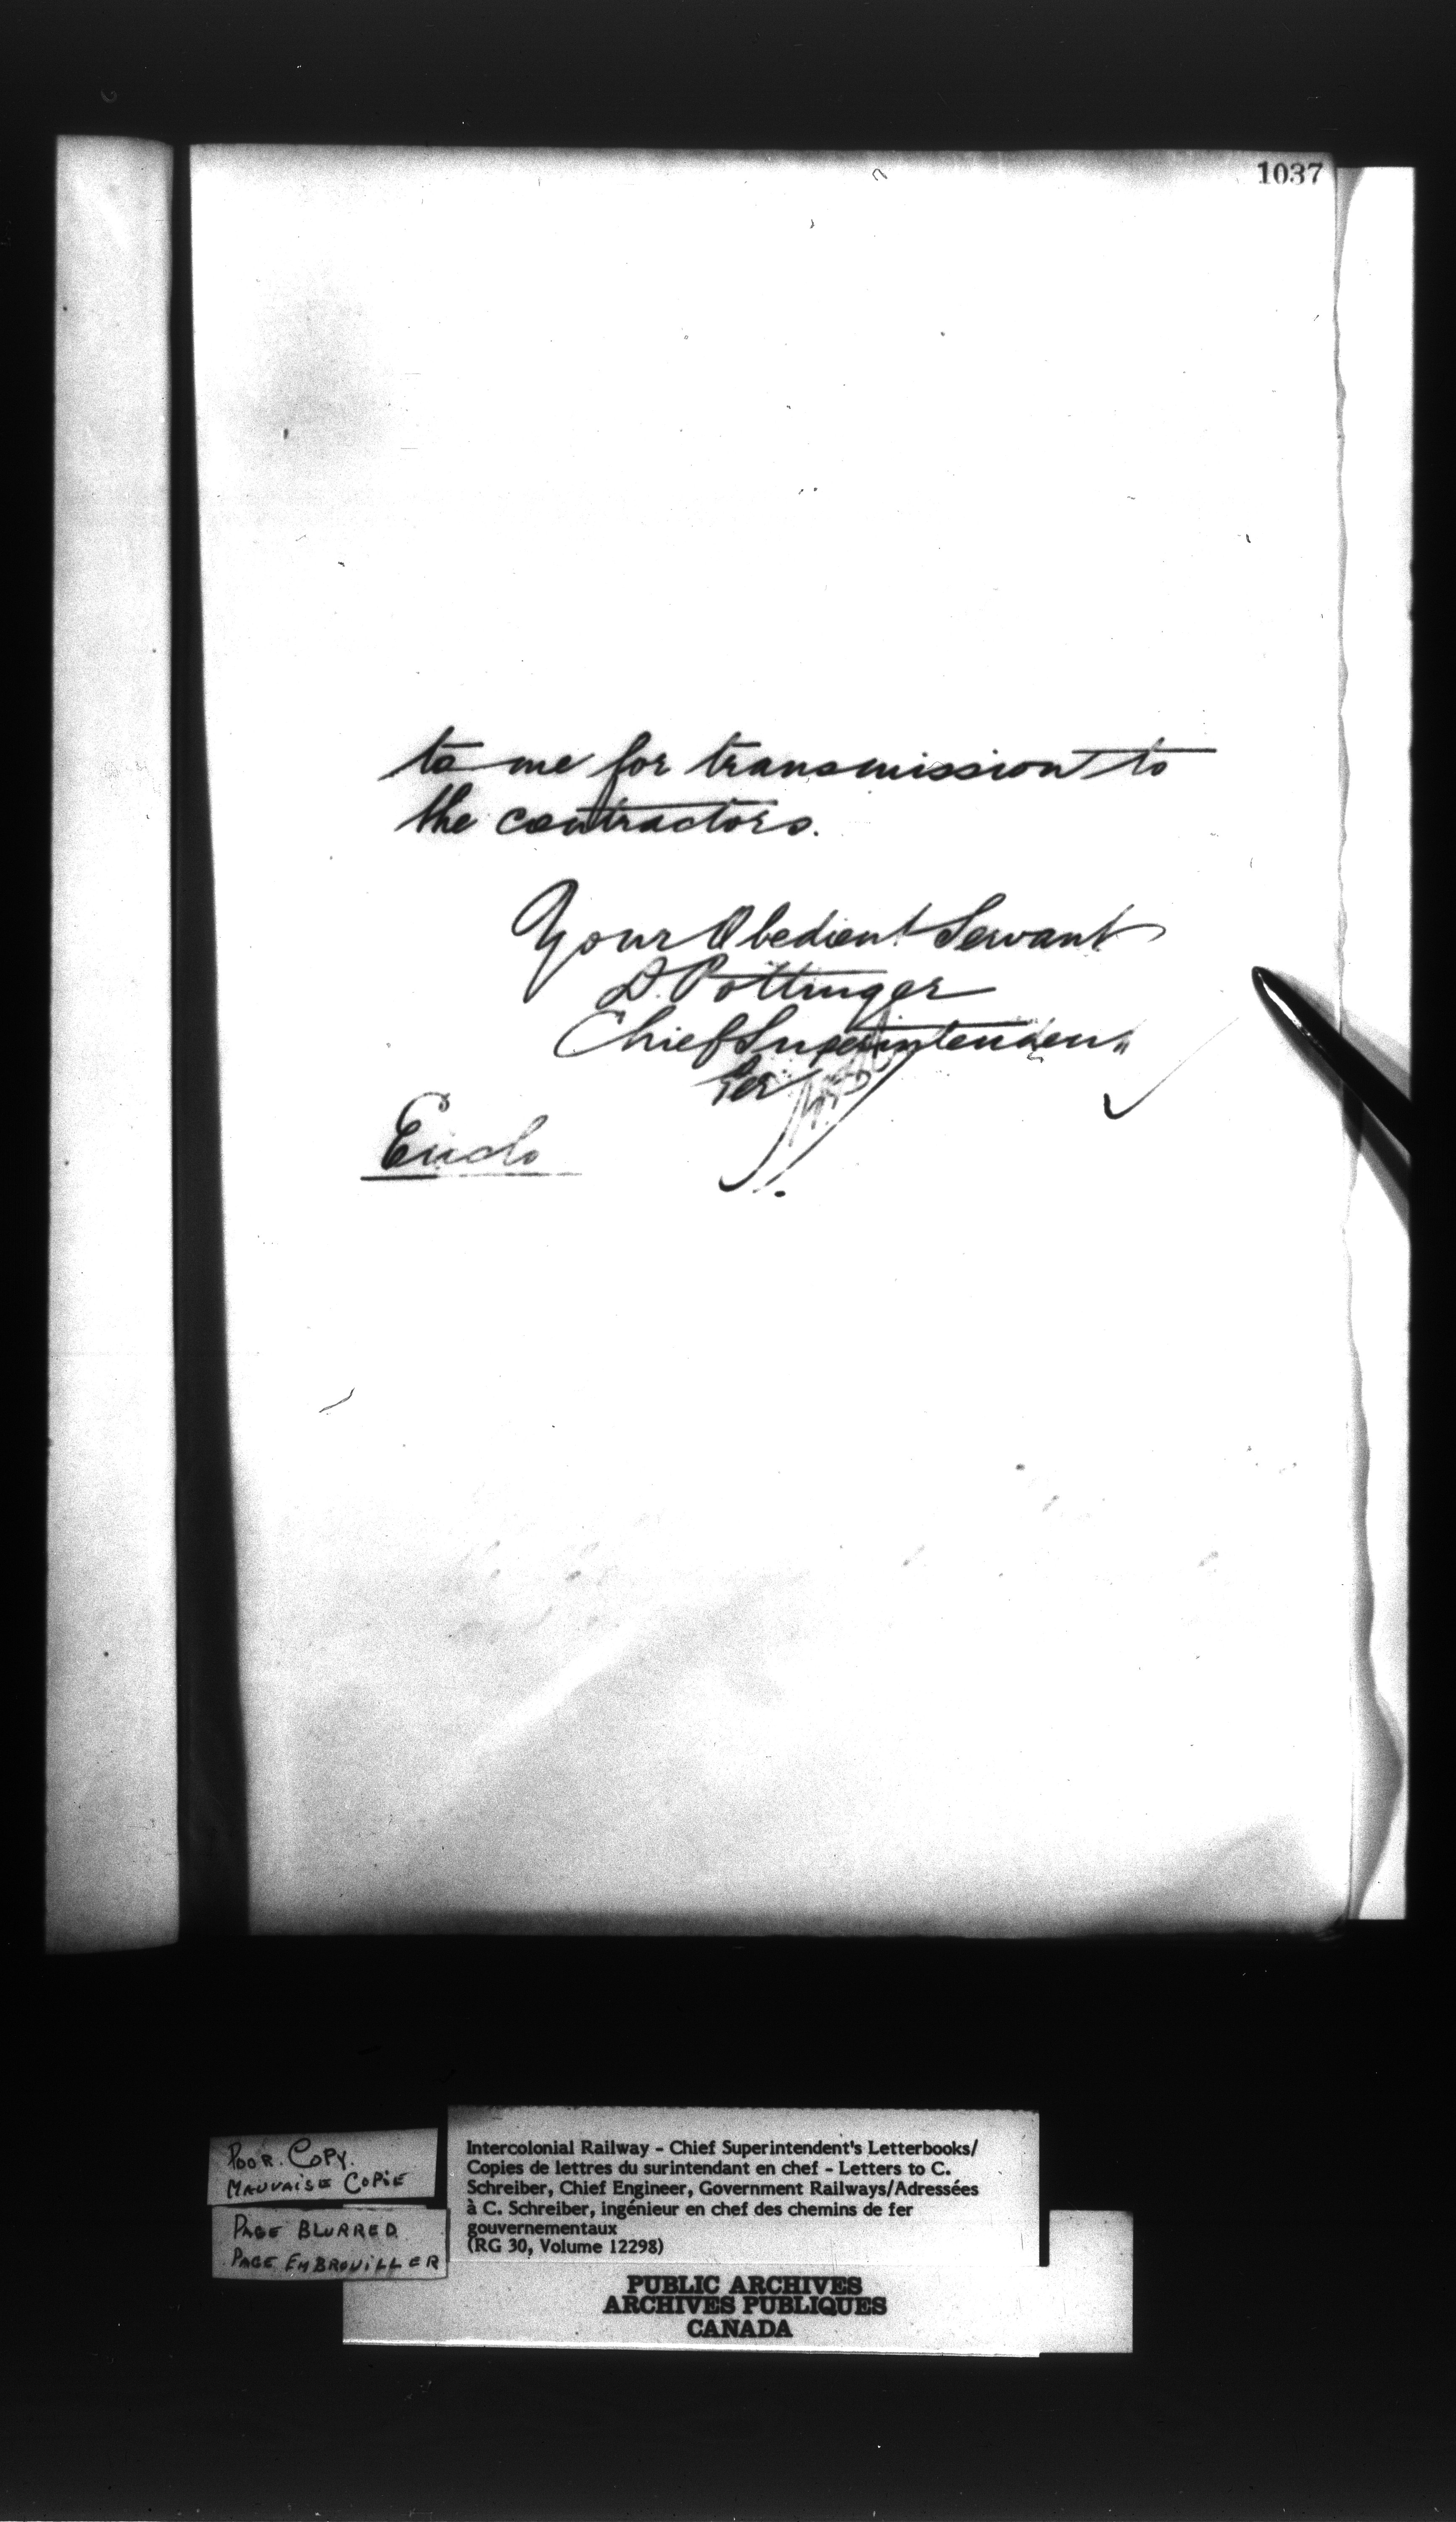 1037
to me for transmission to
the contractors.
Your Obedient Servant
D. Pottinger
Chief Superintendent
Per
Enclo
POOR. COPY.
MAUVAISE COPIE
PAGE BLURRED
PAGE EMBROUILLER
Intercolonial Railway - Chief Superintendent's Letterbooks/
Copies de lettres du surintendant en chef - Letters to C.
Schreiber, Chief Engineer, Government Railways/Adressées
à C. Schreiber, ingénieur en chef des chemins de fer
gouvernementaux
(RG 30, Volume 12298)
PUBLIC ARCHIVES
ARCHIVES PUBLIQUES
CANADA